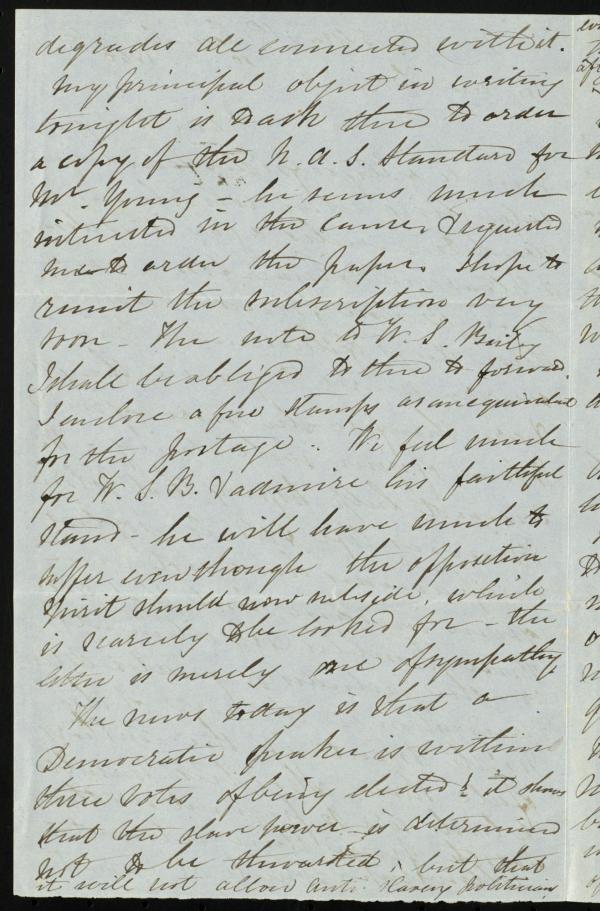 degrades all connected with it.
My principal object in writing
tonight is to ask thee to order
a copy of the N. A. S. Standard for
Mr. Young – he seems much
interested in the cause, & requested
me to order the paper. I hope to
remit the subscription very
soon – The note to W. S. Bailey
I shall be obliged to thee to forward.
I enclose a few stamps as an equivalent
for the postage. We feel much
for W. S. B. & admire his faithful
stand – he will have much to
suffer even though the opposition
spirit should now subside, which
is scarcely to be looked for – the
letter is merely one of sympathy.
The news today is that a
Democratic speaker is within
three votes of being elected! it shows
that the slave power is determined
not to be thwarted, but that
it will not allow anti-slavery politician